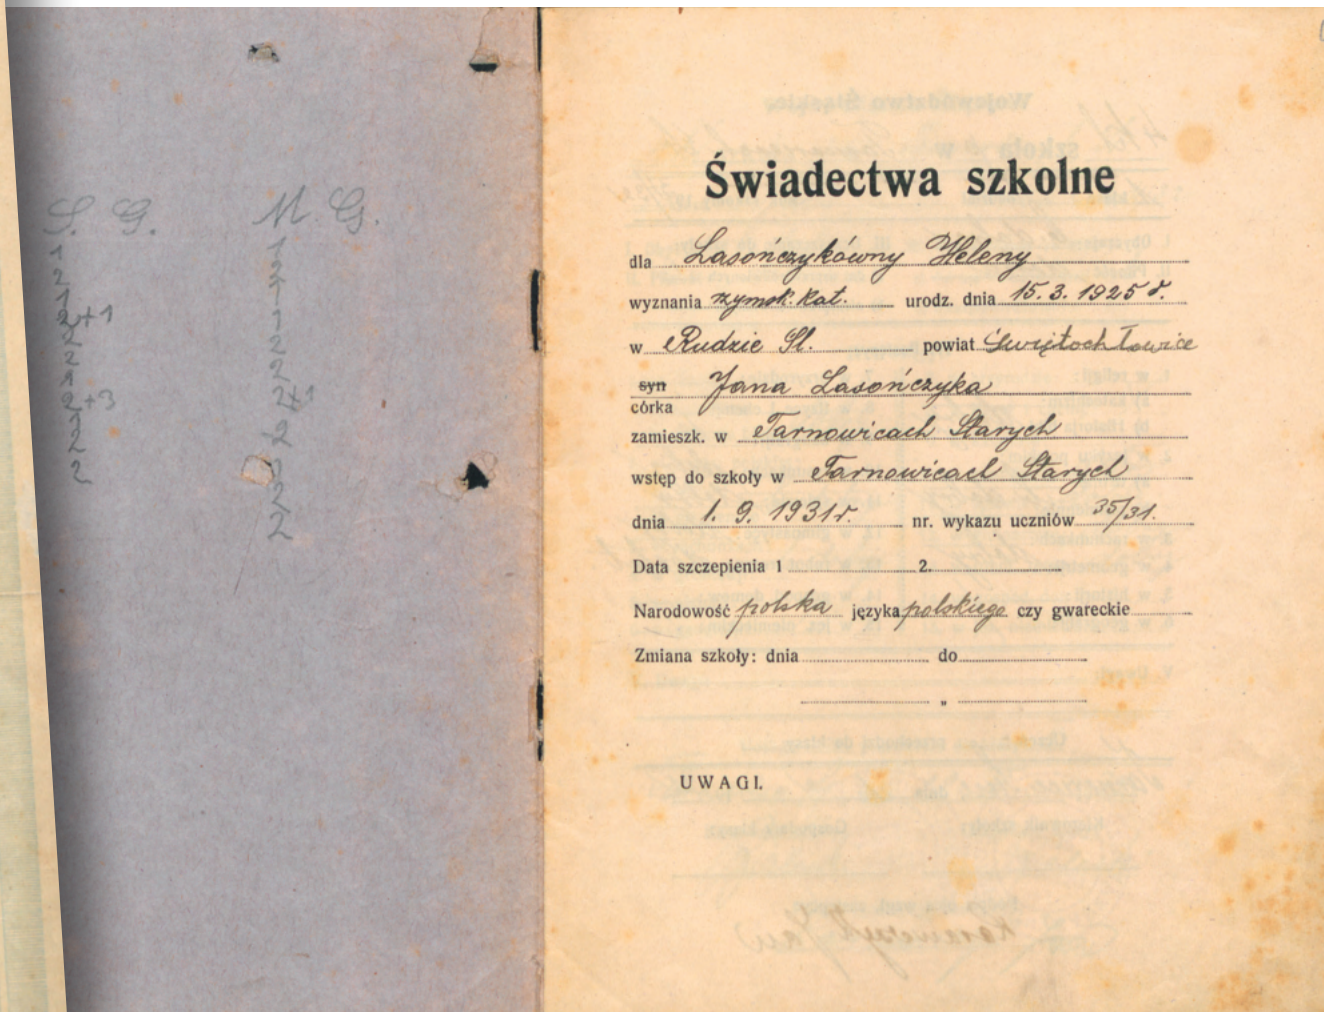 S. G.
1
2
1
2+1
2
2
1
2+3
1
2
2
M. G.
1
2
2
2+1
2
2
2
Świadectwa szkolne
dla Lasończykówny Heleny
wyznania rzymsk. kat. urodz. dnia 15. 3. 1925 r.
w Rudzie Śl. powiat Świętochłowice
syn Jana Lasończyka
córka
zamieszk. w Tarnowicach Starych
wstęp do szkoły w Tarnowicach Starych
dnia 1. 9. 1931 r. nr. wykazu uczniów 35/31.
Data szczepienia 1 2.
Narodowość polska języka polskiego czy gwareckie
Zmiana szkoły: dnia do
„
UWAGI.